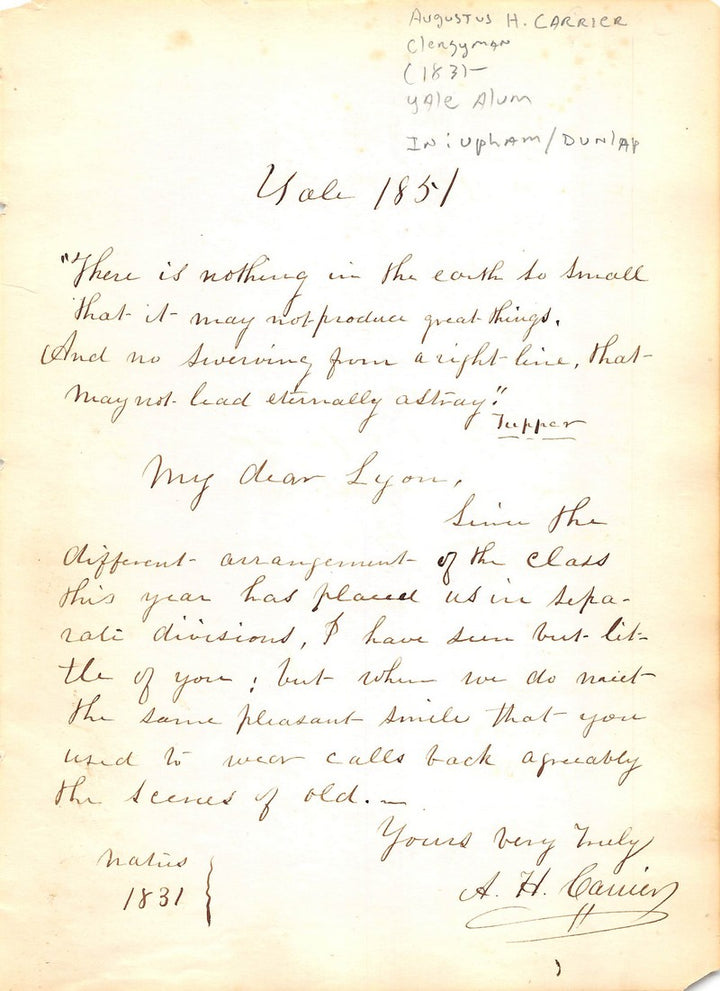 AUGUSTUS H. CARRIER
Clergyman
(1831-
YALE Alum
IN: UPHAM/DUNLAP
Yale 1851
"There is nothing in the earth so small
that it may not produce great things.
And no swerving from a right line, that
may not lead eternally astray."
Tupper
My dear Lyon,
Since the
different arrangement of the class
this year has placed us in sepa-
rate divisions, I have seen but lit-
tle of you; but when we do meet
the same pleasant smile that you
used to wear calls back agreeably
the scenes of old. —
Yours very truly
A. H. Carrier
Natus
1831